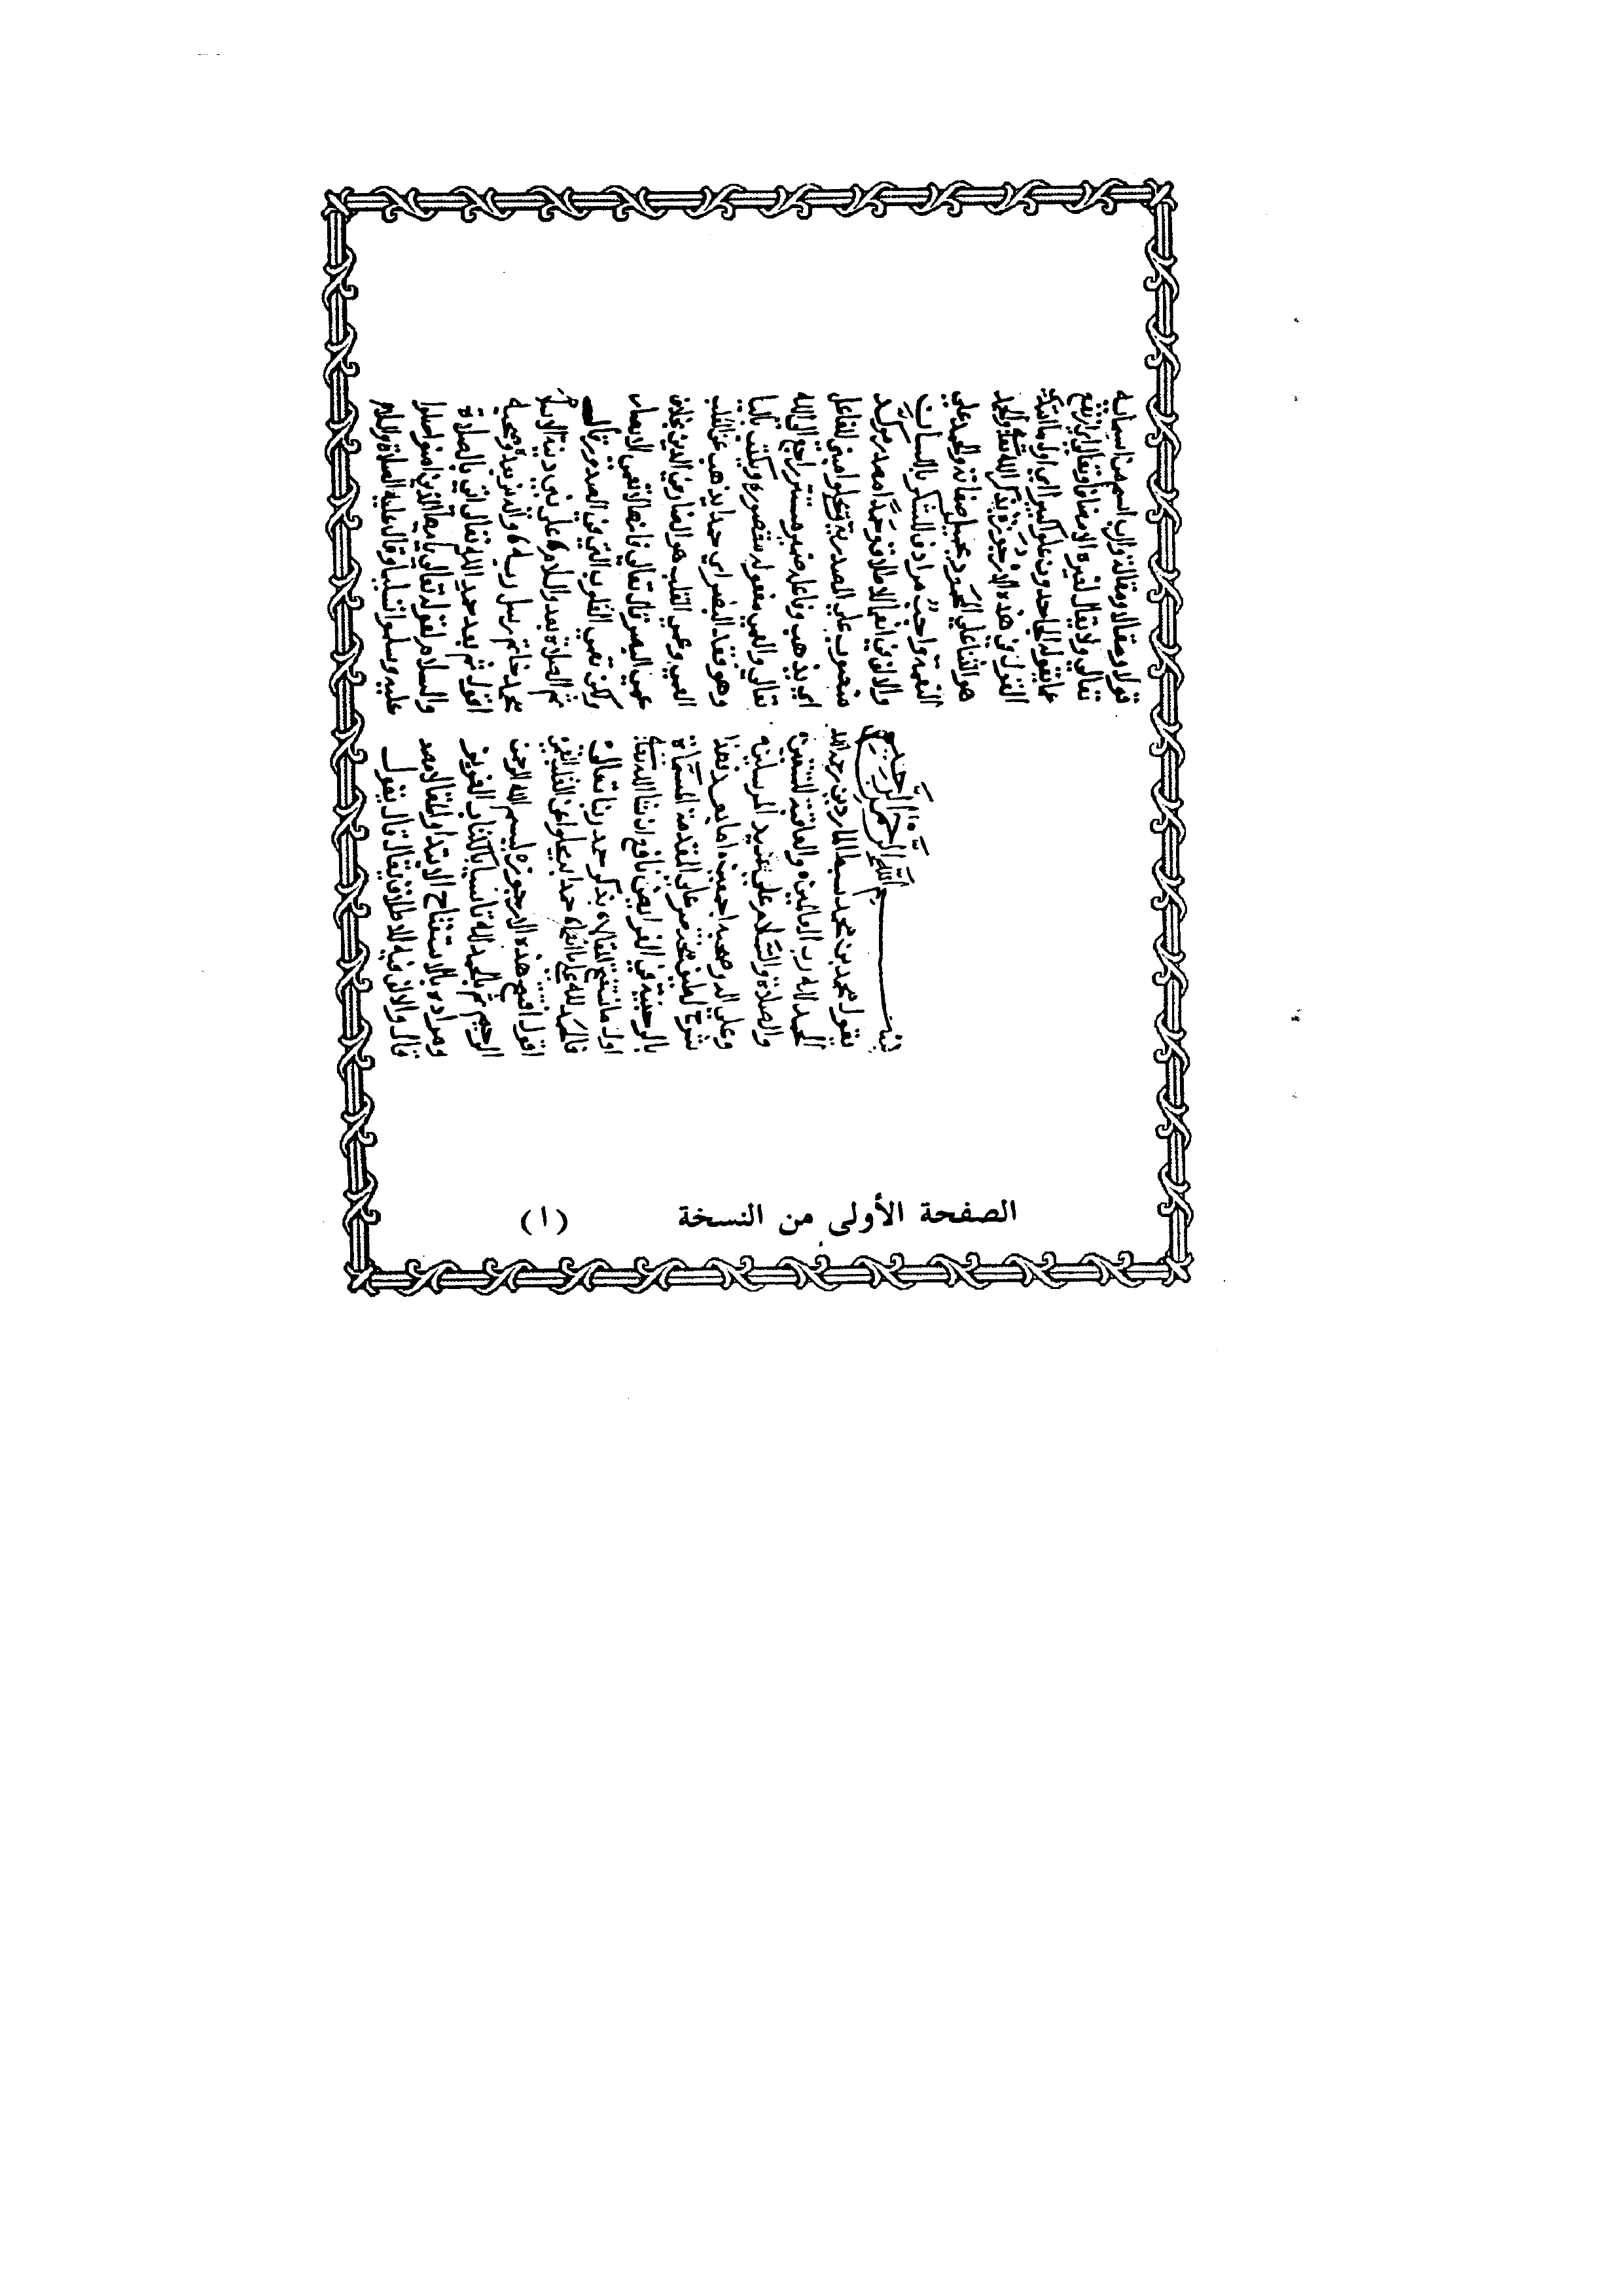 بسم الله الرحمن الرحيم
يقول محمد بن محمد سبط المارديني رحمه الله
الحمد لله رب العالمين والعاقبة للمتقين
والصلاة والسلام على سيد المرسلين
وعلى اله وصحبه اجمعين اما بعد فهذا
شرح لطيف مختصر على المقدمة المسماة
بالرحبية في الفرايض نافع ان شا الله
اول ما نستفتح المقالا بذكر حمد ربنا تعالى
فالحمد لله على ما انعما حمدا به يجلوا عن القلب العمى
اقول افتتح هذه الارجوزة ببسم الله الرحمن
الرحيم ثم بالحمد لله تاسيا بالكتاب العزيز
ومراده بالاستفتاح الابتدا والمقالا مصدر
قال والالف فيه للاطلاق يقال قال يقول
قولا ومقالا ومقالة والرب اسم من اسمايه
تعالى ولا يقال لغيره الا مضافا وتعالى اي ارتفع
عما يقوله الجاحدون علوا كبيرا اي اول ما نبتدئ
القول في هذه الارجوزة بذكر الله تعالى والحمد
هو الثنا على المحمود بجميل صفاته والحمد على
النعمة واجب مرادف الشكر باللسان
والالف في انعما للاطلاق وحمدا مصدر موكد
منصوب على المصدرية ويجلوا مبني للفاعل
اي يذهب وفاعله ضمير مستتر راجع الى الله
تعالى والعمى مفعوله مقصوره ويكتب باليا
وهو فقد البصر اي حمدا يذهب عن القلب
العمى وعمى القلب هو الضار في الدين بخلاف
عمى البصر قال تعالى فانها لا تعمى الابصار
ولكن تعمى القلوب التي في الصدور قال
ثم الصلاة بعد والسلام على نبي دينه الاسلام
محمد خاتم رسل ربه واله من بعده وصحبه
اقول ثم بعد حمد الله تعالى اتي بالصلاة
والسلام لقوله تعالى يا ايها الذين امنوا صلوا
عليه وسلموا تسليما وقال عليه الصلاة والسلام
الصفحة الأولى من النسخة (ا)